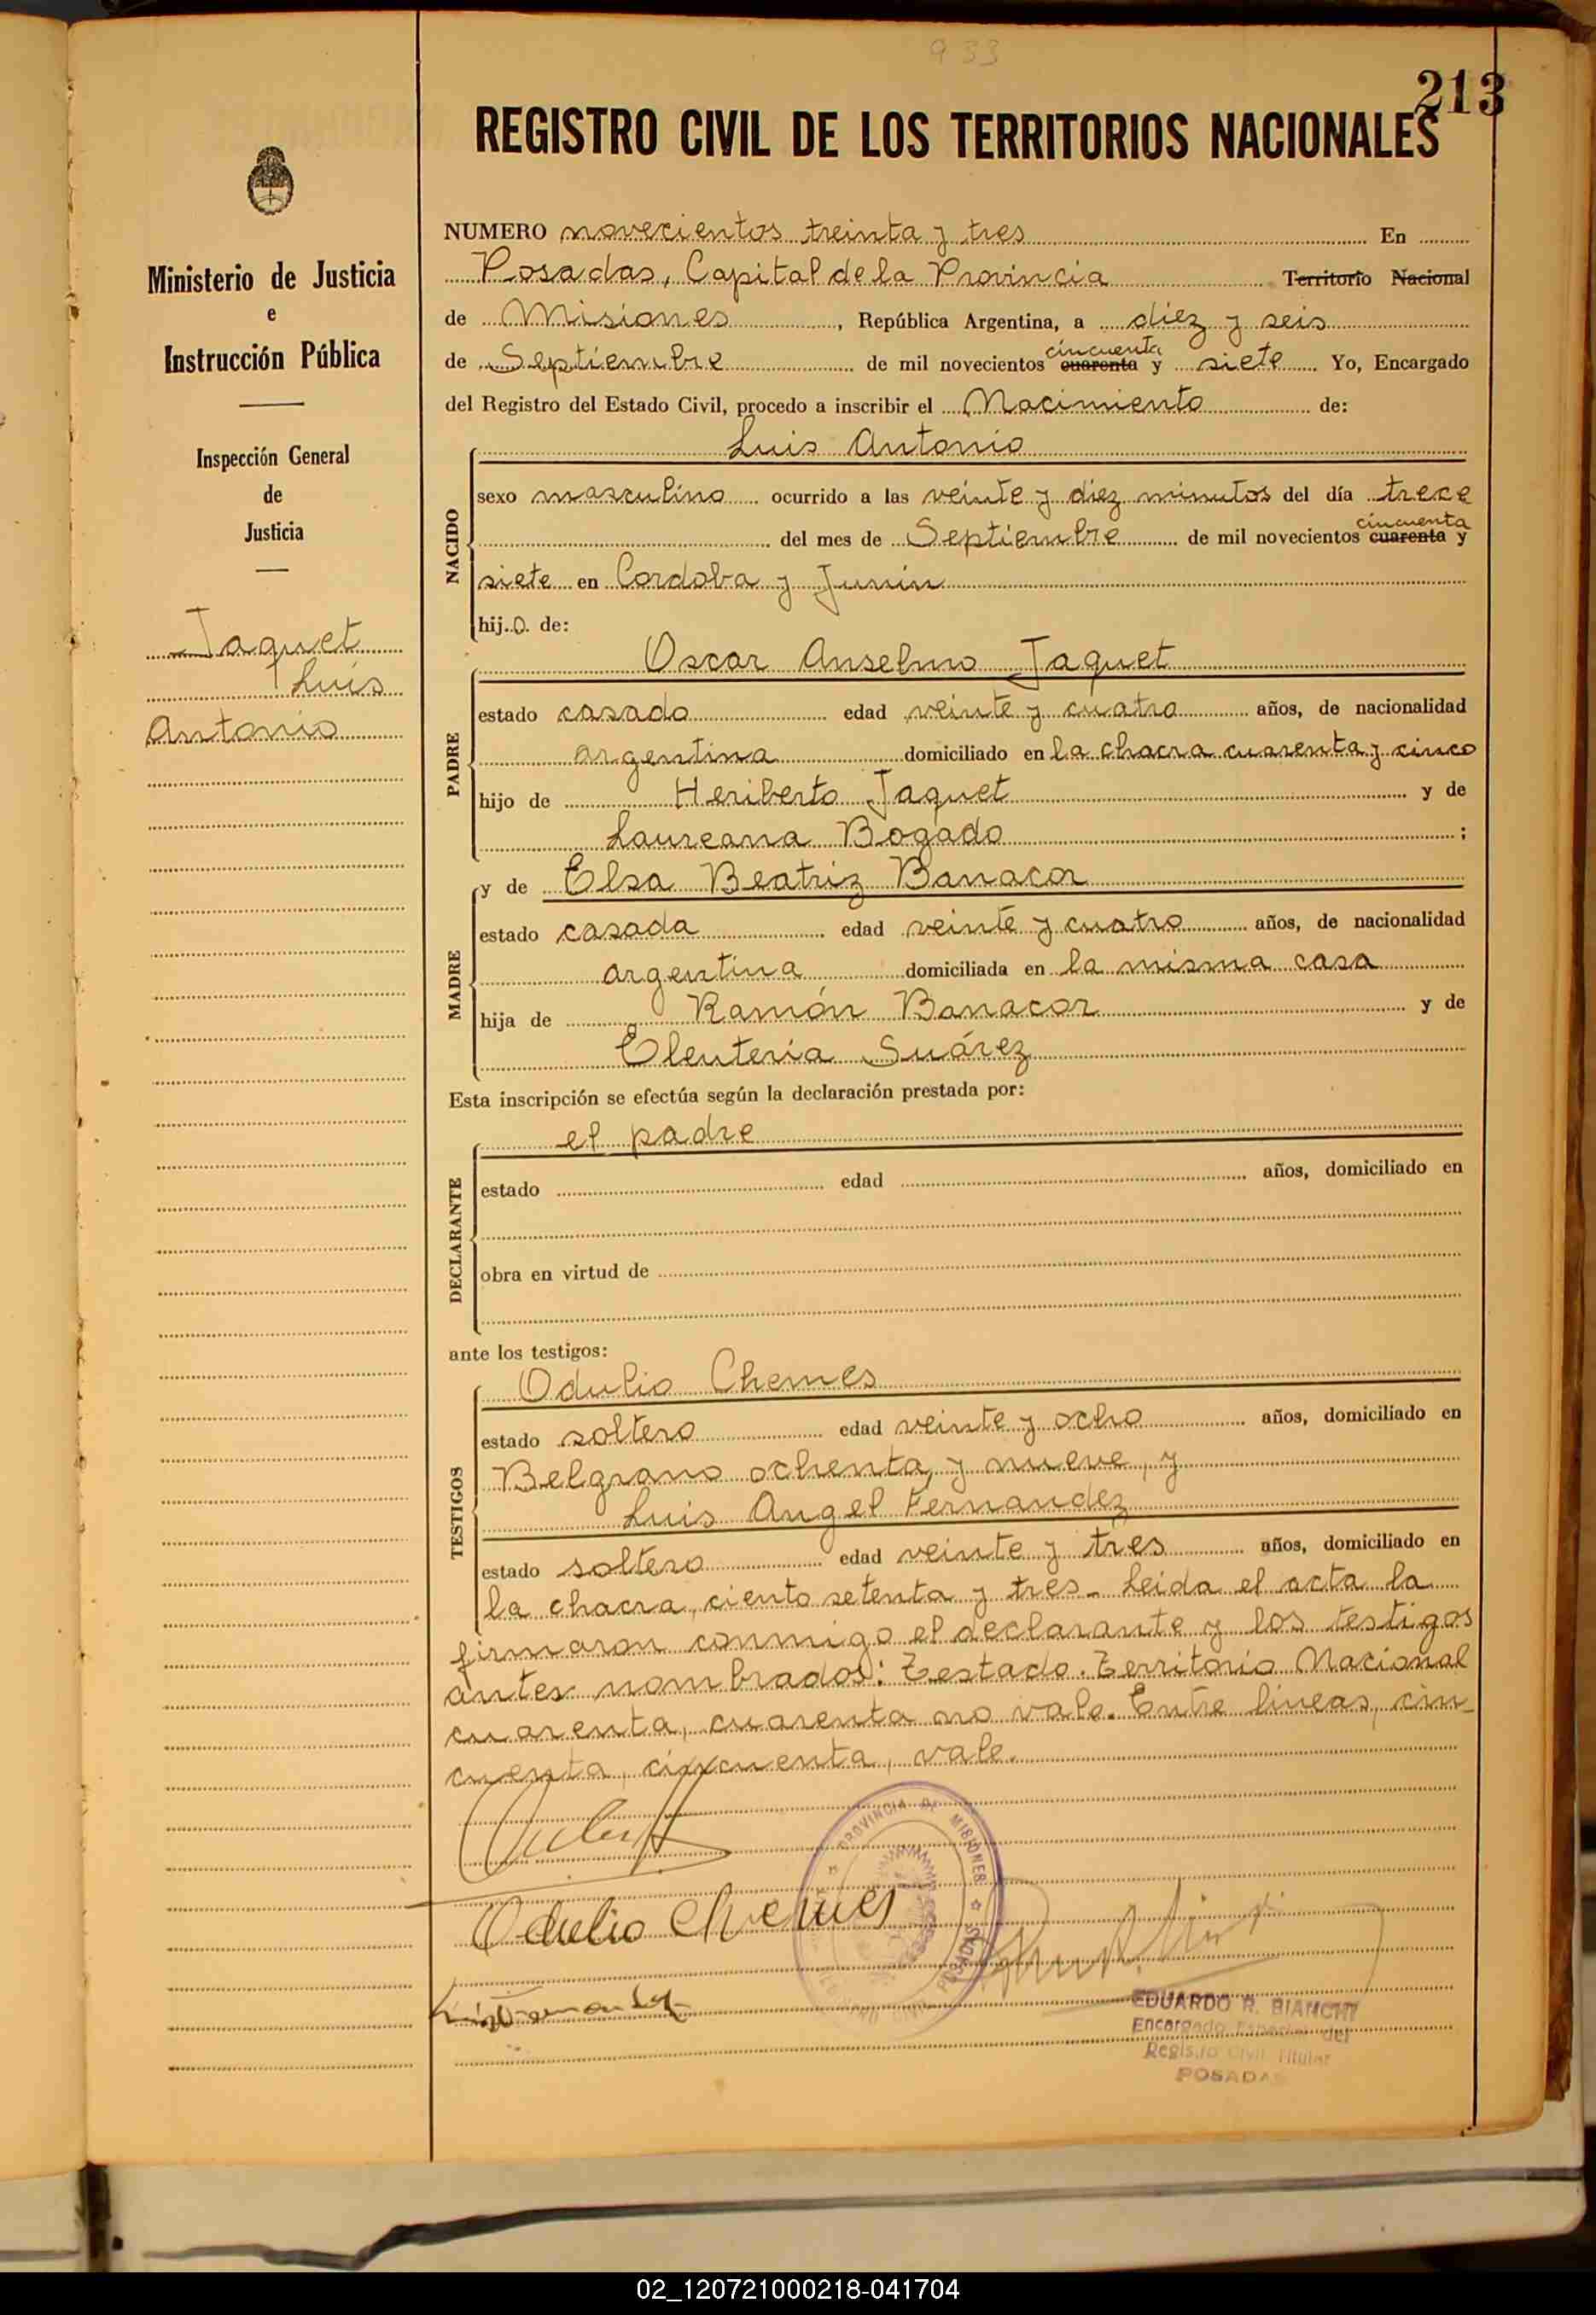 933
213
REGISTRO CIVIL DE LOS TERRITORIOS NACIONALES
Ministerio de Justicia
e
Instrucción Pública
Inspección General
de
Justicia
Jaquet
Luis
Antonio
NUMERO novecientos treinta y tres En
Posadas, Capital de la Provincia Territorio Nacional
de Misiones, República Argentina, a diez y seis
cincuenta
de Septiembre de mil novecientos cuarenta y siete Yo, Encargado
del Registro del Estado Civil, procedo a inscribir el Nacimiento de:
NACIDO
Luis Antonio
sexo masculino ocurrido a las veinte y diez minutos del día trece
cincuenta
del mes de Septiembre de mil novecientos cuarenta y
siete en Cordoba y Junin
hij o de:
PADRE
Oscar Anselmo Jaquet
estado casado edad veinte y cuatro años, de nacionalidad
argentina domiciliado en la chacra cuarenta y cinco
hijo de Heriberto Jaquet y de
Laureana Bogado ;
MADRE
y de Elsa Beatriz Banacor
estado casada edad veinte y cuatro años, de nacionalidad
argentina domiciliada en la misma casa
hija de Ramón Banacor y de
Eleuteria Suárez
Esta inscripción se efectúa según la declaración prestada por:
DECLARANTE
el padre
estado edad años, domiciliado en
obra en virtud de
ante los testigos:
TESTIGOS
Odulio Chemes
estado soltero edad veinte y ocho años, domiciliado en
Belgrano ochenta y nueve, y
Luis Angel Fernandez
estado soltero edad veinte y tres años, domiciliado en
la chacra, ciento setenta y tres. Leida el acta la
firmaron conmigo el declarante y los testigos
antes nombrados: Testado. Territorio Nacional
cuarenta, cuarenta no vale. Entre lineas, cin-
cuenta, cincuenta, vale.
PROVINCIA DE MISIONES
POSADAS
Odulio Chemes
EDUARDO R. BIANCHI
Encargado Especial del
Registro Civil Titular
POSADAS
02_120721000218-041704